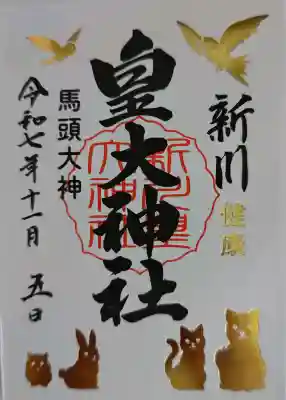 新川
健康
皇大神社
新川皇
大神社
馬頭大神
令和七年十一月五日